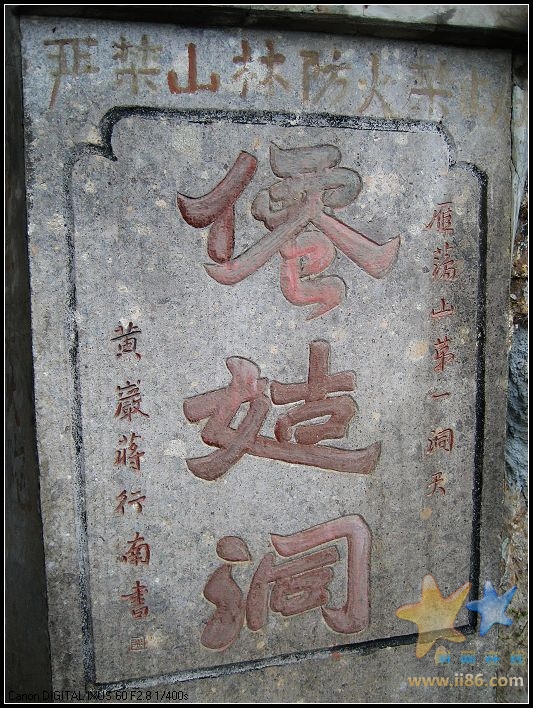 严禁山林防火禁
雁蕩山第一洞
僊姑洞
黄巖蔣行南書
www.ii86.com
Canon DIGITAL IXUS 60 F2.8 1/400s